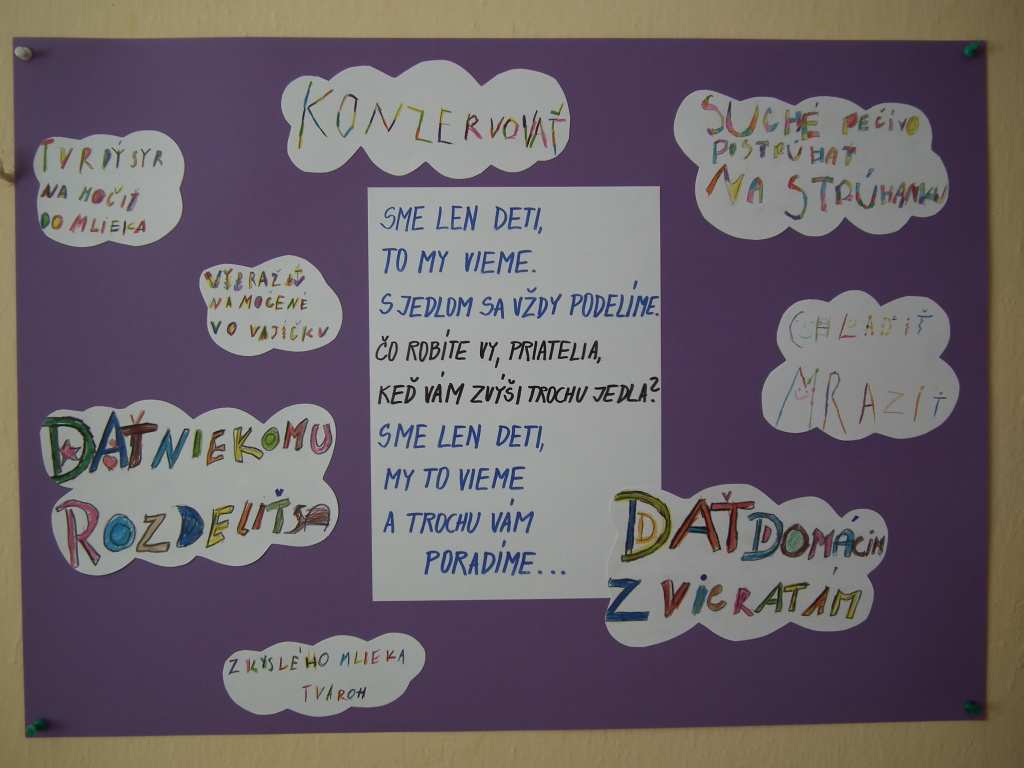 KONZERVOVAŤ
SUCHÉ PEČIVO
POSTRÚHAŤ
NA STRÚHANKU
TVRDÝ SYR
NA MOČIŤ
DO MLIEKA
VYPRAŽIŤ
NAMOČENÉ
VO VAJÍČKU
SME LEN DETI,
TO MY VIEME.
S JEDLOM SA VŽDY PODELÍME.
ČO ROBÍTE VY, PRIATELIA,
KEĎ VÁM ZVÝŠI TROCHU JEDLA?
SME LEN DETI,
MY TO VIEME
A TROCHU VÁM
PORADÍME...
CHLADIŤ
MRAZIŤ
DAŤ NIEKOMU
ROZDELIŤ SA
DAŤ DOMÁCIM
ZVIERATÁM
Z KYSLÉHO MLIEKA
TVAROH